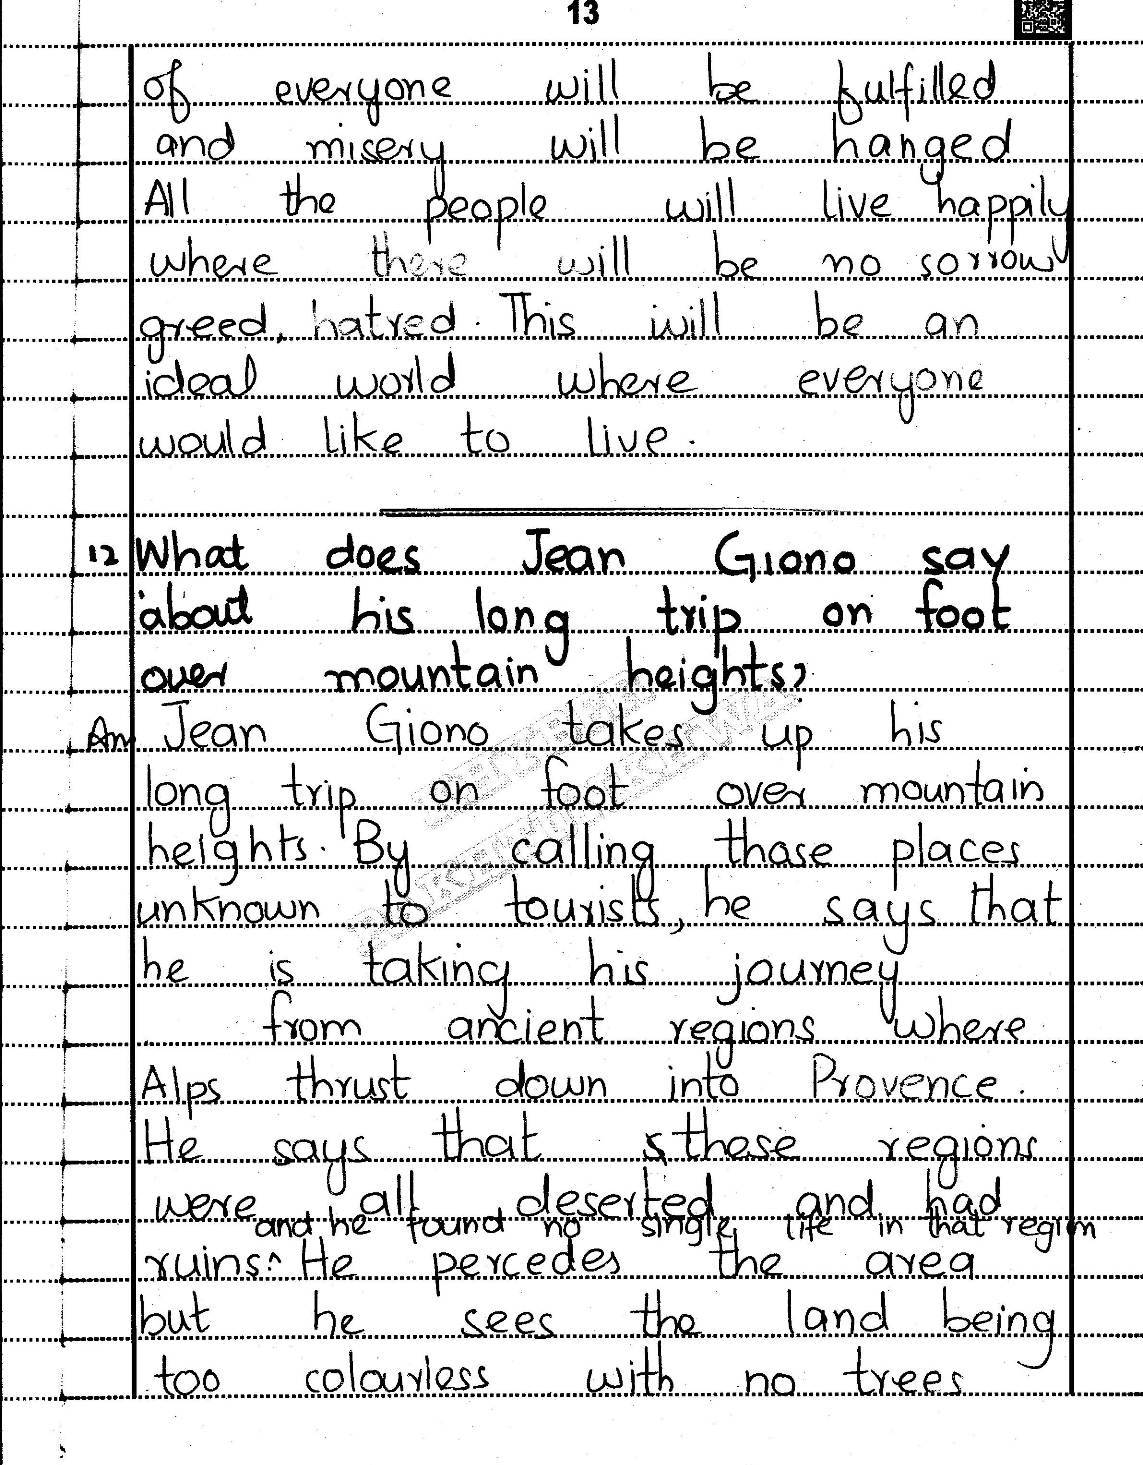 13
of everyone will be fulfilled
and misery will be hanged
All the people will live happily
where there will be no sorrow
greed, hatred. This will be an
ideal world where everyone
would like to live.
12 What does Jean Giono say
about his long trip on foot
over mountain heights?
Ans Jean Giono takes up his
long trip on foot over mountain
heights. By calling those places
unknown to tourists, he says that
he is taking his journey
from ancient regions where
Alps thrust down into Provence.
He says that these regions
were all deserted and had
and he found no single life in that region
ruins.^ He percedes the area
but he sees the land being
too colourless with no trees